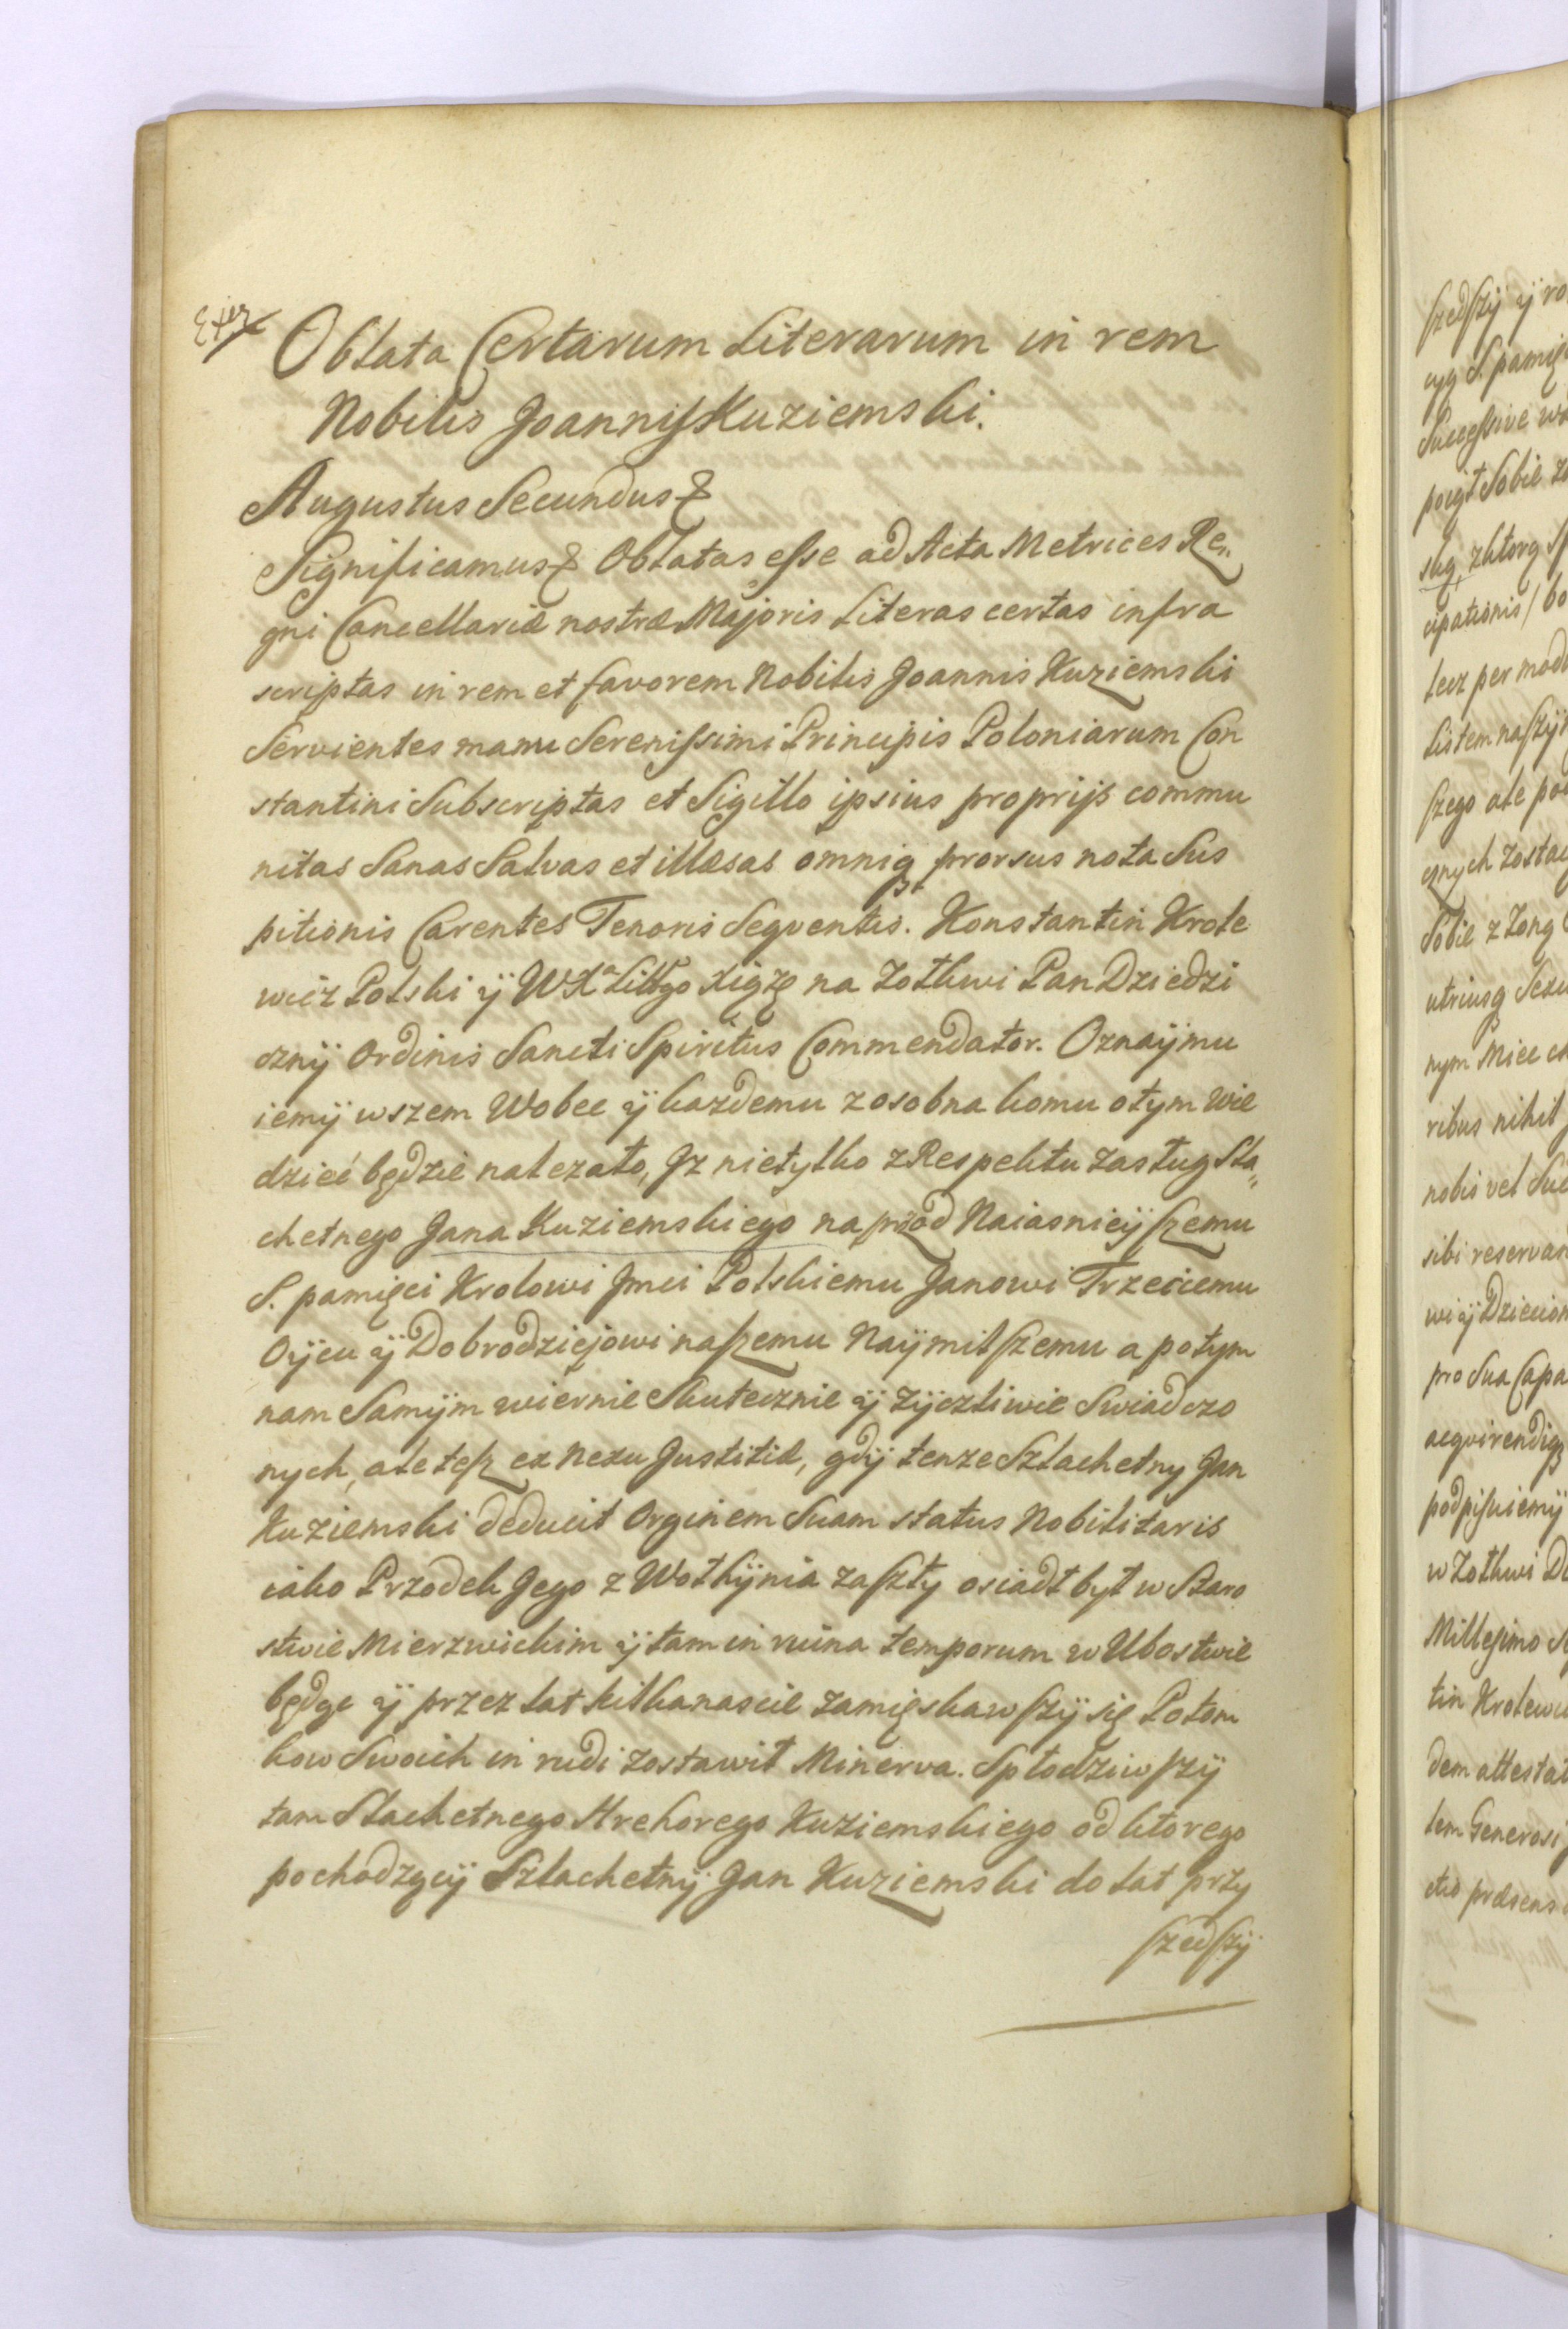 Oblata Certarum Literarum in rem
Nobilis Joannis Kuziemski.
Augustus Secundus &
Significamus & Oblatas esse ad Acta Metrices Re„
gni Cancellariæ nostræ Majoris Literas certas infra
scriptas in rem et favorem Nobilis Joannis Kuziemski
Servientes manu Serenissimi Principis Poloniarum Con
stantini Subscriptas et Sigillo ipsius proprijs commu
nitas Sanas Salvas et illæsas omniq3 prorsus nota Sus
pitionis Carentes Tenoris Seqventis. Konstantin Krole
wicz Polski ÿ WXa Littgo Xiąże na Zołkwi Pan Dziedzi
cznÿ Ordinis Sancti Spiritus Commendator. Oznaÿmu
iemÿ wszem Wobec ÿ kazdemu zosobna komu otym Wie
dzieć będzie nalezało, Jz nietylko z Respektu zasług Sla„
chetnego Jana Kuziemskiego naprzod Naiasnieÿszemu
S. pamięci Krolowi Jmci Polskiemu Janowi Trzeciemu
Oÿcu ÿ Dobrodziejowi naszemu Naÿmilszemu a potym
nam Samÿm wiernie Skutecznie ÿ zÿczliwie Swiadczo
nych, ale tesz ex nexu Justitiæ, gdÿ tenze Szlachetny Jan
Kuziemski deducit Orginem Suam status Nobilitaris
iako Przodek Jego z Wołhÿnia zaszły osiadł był w Staro
stwie Mierzwickim ÿ tam in ruina temporum w Ubostwie
będąc ÿ przez lat kilkanascie zamięskawszÿ się Potom
kow Swoich in rudi zostawił Minerva. Spłodziwszÿ
tam Slachetnego Hrehorego Kuziemskiego od ktorego
pochodzącÿ Szlachetnÿ Jan Kuziemski do lat przy
szedszÿ
szedszÿ ÿ
S. pamię
Successive
Sobie
ktorą
cipationis /
lecz per
Listem naszÿm
szego ale
znych
Sobie z Zoną
utriusq
nym
ribus nihil
nobis vel
sibi
wi ÿ
pro Sua
acqvirendiq3
podpisuiemÿ
w Zołkwi
Millesimo
tin
dem
tem Generosi
præsens